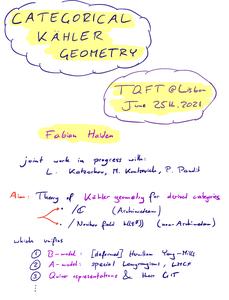 CATEGORICAL
KÄHLER
GEOMETRY
TQFT @ Lisbon
June 25th, 2021
Fabian Haiden
joint work in progress with:
L. Katzarkov, M. Kontsevich, P. Pandit
Aim: Theory of Kähler geometry for derived categories
/ℂ (Archimedean)
/ Novikov field (non-Archimedean)
which unifies
① B-model: [deformed] Hermitian Yang-Mills
② A-model: special Lagrangians, LMCF
③ Quiver representations & their GIT
⋮